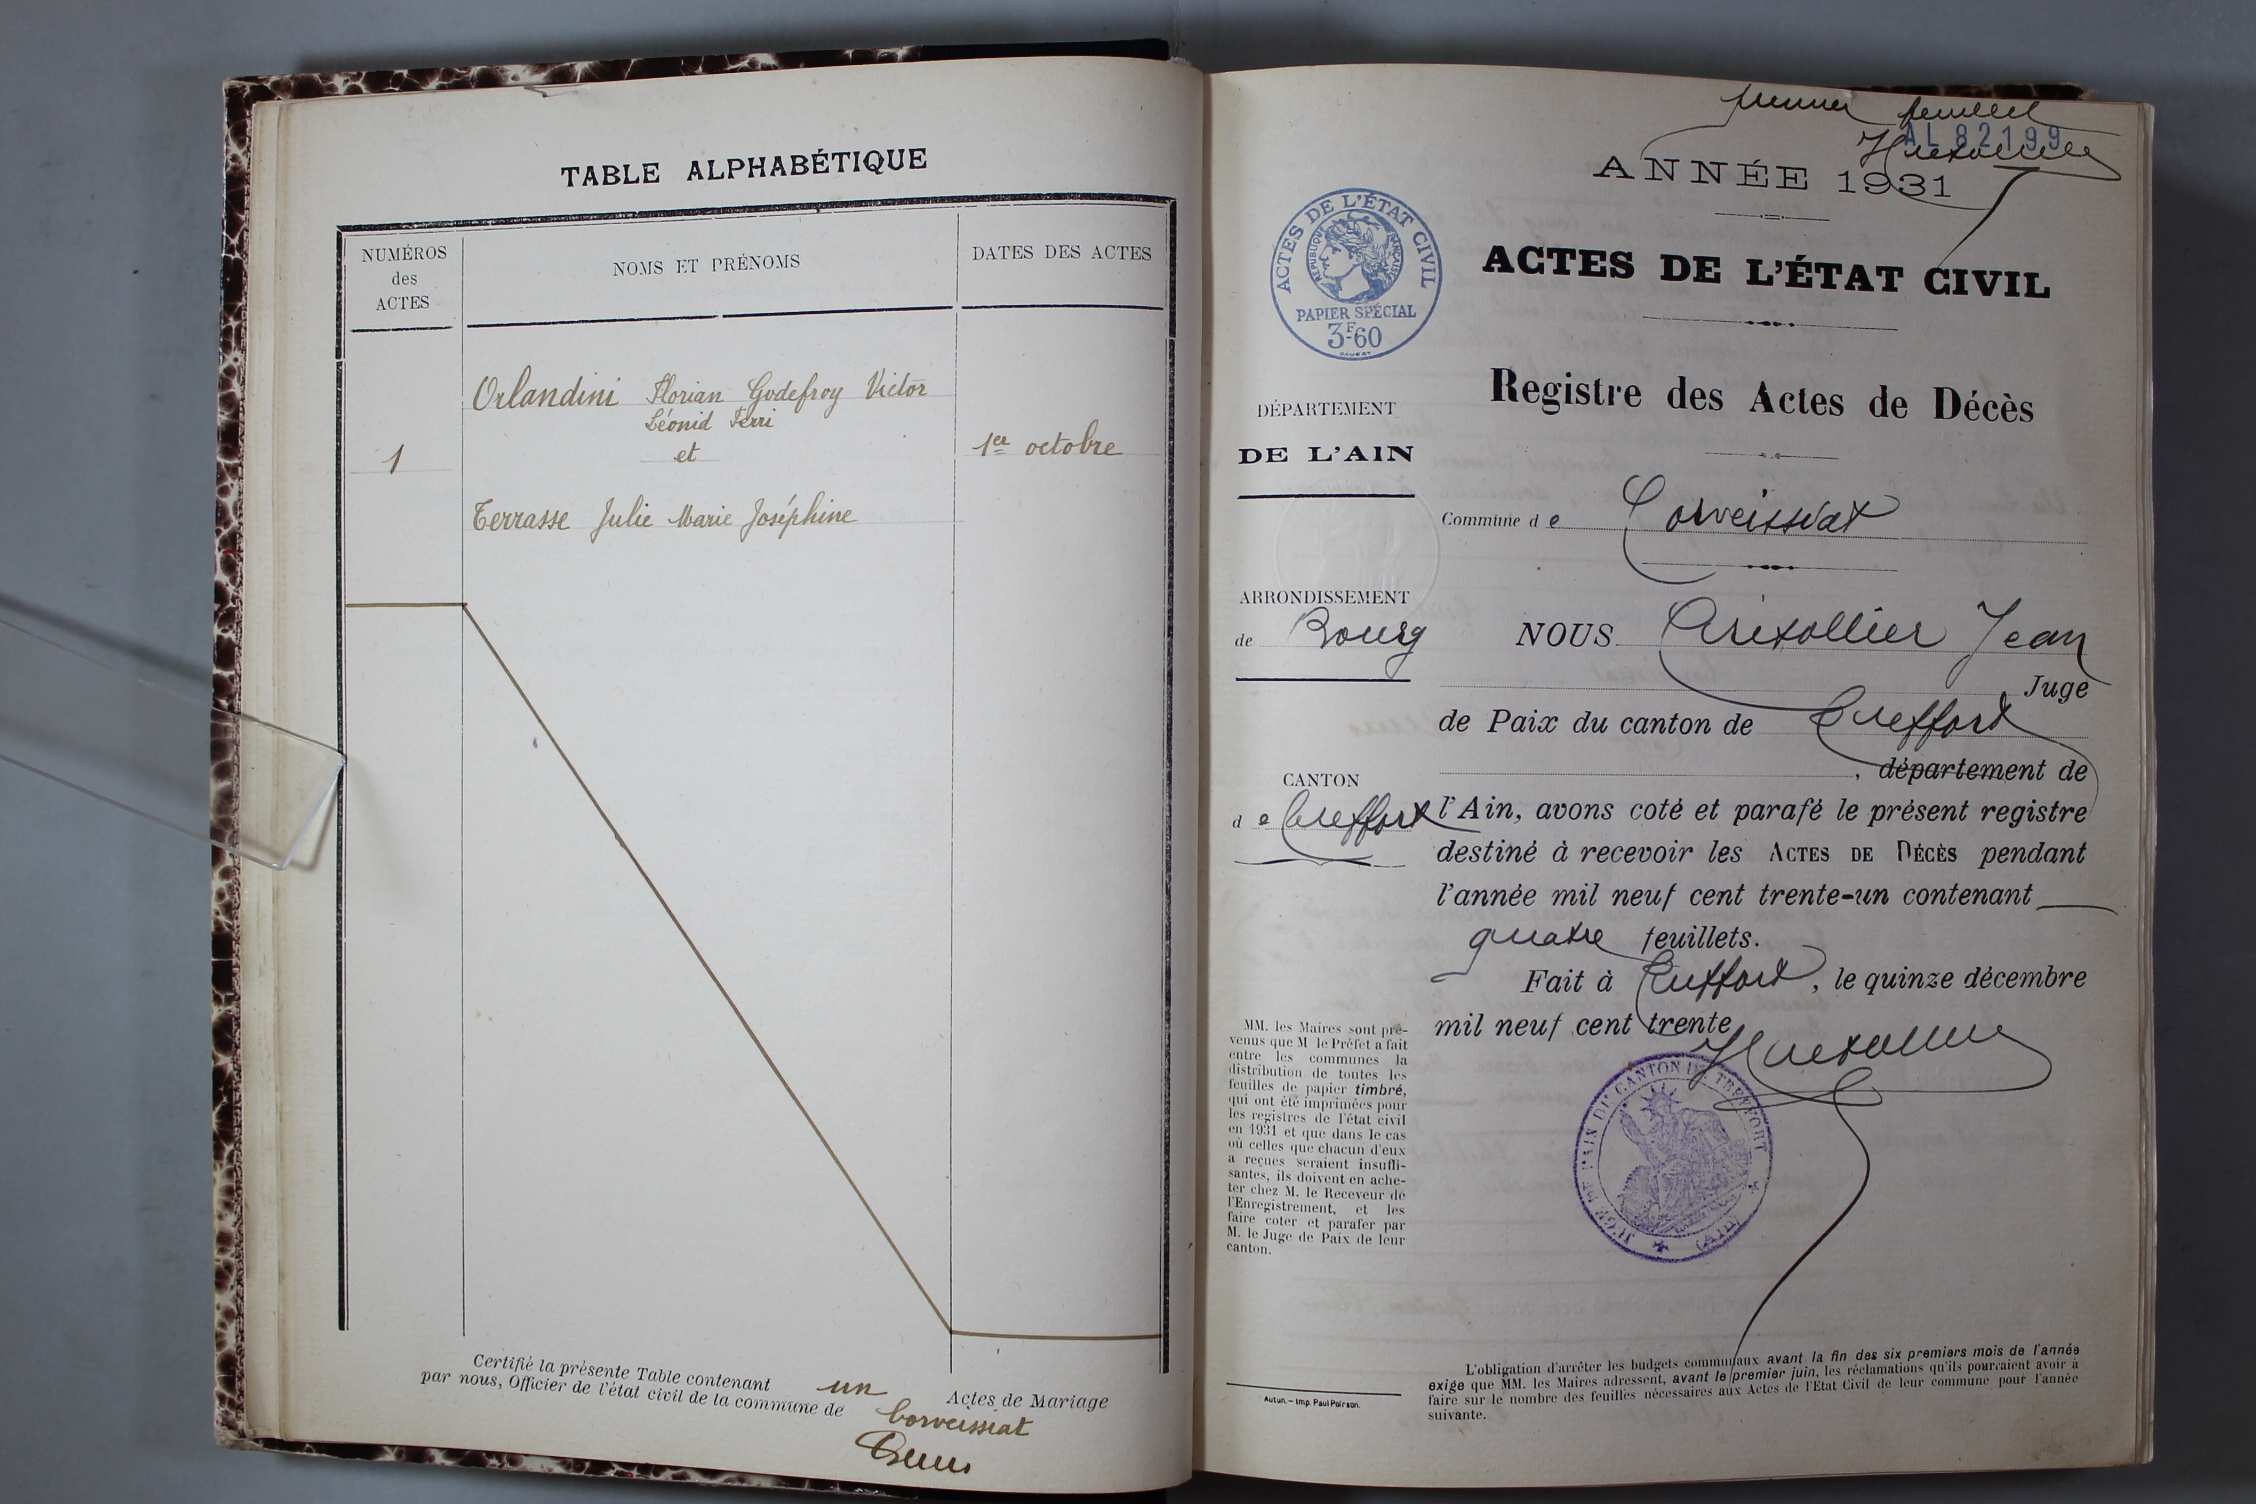 TABLE ALPHABÉTIQUE
NUMÉROS
des
ACTES
NOMS ET PRÉNOMS
DATES DES ACTES
Orlandini Florian Godefroy Victor
Léonid Ferri
1
et
1er octobre
Terrasse Julie Marie Joséphine
Certifié la présente Table contenant un Actes de Mariage
par nous, Officier de l'état civil de la commune de Corveissiat
premier feuillet
AL 82199
ANNÉE 1931
ACTES DE L'ÉTAT CIVIL
RÉPUBLIQUE FRANÇAISE
PAPIER SPÉCIAL
3F60
ACTES DE L'ÉTAT CIVIL
Registre des Actes de Décès
DÉPARTEMENT
DE L'AIN
Commune de Corveissiat
ARRONDISSEMENT
de Bourg
CANTON
de Treffort
NOUS Jean
Juge
de Paix du canton de Treffort
, département de
l'Ain, avons coté et parafé le présent registre
destiné à recevoir les ACTES DE DÉCÈS pendant
l'année mil neuf cent trente-un contenant
quatre feuillets.
Fait à Treffort, le quinze décembre
mil neuf cent trente
JUGE DE PAIX DU CANTON DE TREFFORT
(AIN)
MM. les Maires sont pré-
venus que M le Préfet a fait
entre les communes la
distribution de toutes les
feuilles de papier timbré,
qui ont été imprimées pour
les registres de l'état civil
en 1931 et que dans le cas
où celles que chacun d'eux
a reçues seraient insuffi-
santes, ils doivent en ache-
ter chez M. le Receveur de
l'Enregistrement, et les
faire coter et parafer par
M. le Juge de Paix de leur
canton.
Autun. — Imp. Paul Poirson.
L'obligation d'arrêter les budgets communaux avant la fin des six premiers mois de l'année
exige que MM. les Maires adressent, avant le premier juin, les réclamations qu'ils pourraient avoir à
faire sur le nombre des feuilles nécessaires aux Actes de l'Etat Civil de leur commune pour l'année
suivante.